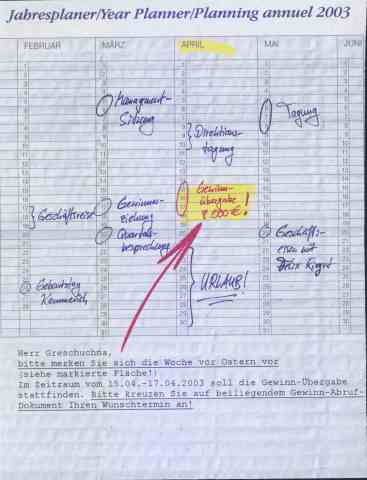 Jahresplaner/Year Planner/Planning annuel 2003
FEBRUAR MÄRZ APRIL MAI JUNI
Management-
Sitzung
Tagung
Direktions-
tagung
Gewinn-
übergabe
8.000 €!
Geschäftsreise
Gewinner-
ziehung
Quartals-
besprechung
Geschäfts-
essen mit
Geburtstag
URLAUB!
Herr Greschuchna,
bitte merken Sie sich die Woche vor Ostern vor
(siehe markierte Fläche!)
Im Zeitraum vom 15.04.-17.04.2003 soll die Gewinn-Übergabe
stattfinden. Bitte kreuzen Sie auf beiliegendem Gewinn-Abruf-
Dokument Ihren Wunschtermin an!